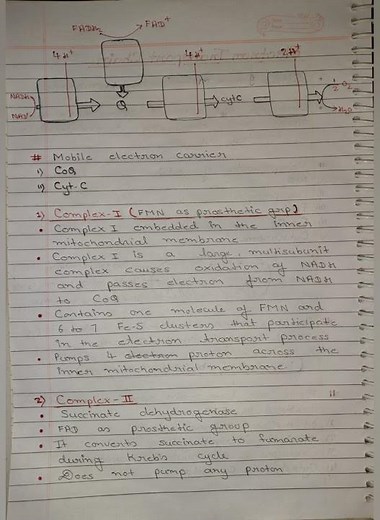 FADH₂ FAD⁺
4H⁺ 4H⁺ 2H⁺
NADH Q cytC ½ O₂
NAD⁺ H₂O
# Mobile electron carrier
i) CoQ
ii) Cyt-C
1) Complex-I (FMN as prosthetic grp)
• Complex I embedded in the inner
mitochondrial membrane
• Complex I is a large, multisubunit
complex causes oxidation of NADH
and passes electron from NADH
to CoQ
• Contains one molecule of FMN and
6 to 7 Fe-S clusters that participate
in the electron transport process
• Pumps 4 electron proton across the
inner mitochondrial membrane
2) Complex-II
• Succinate dehydrogenase
• FAD as prosthetic group
• It converts succinate to fumarate
during Kreb's cycle
• Does not pump any proton